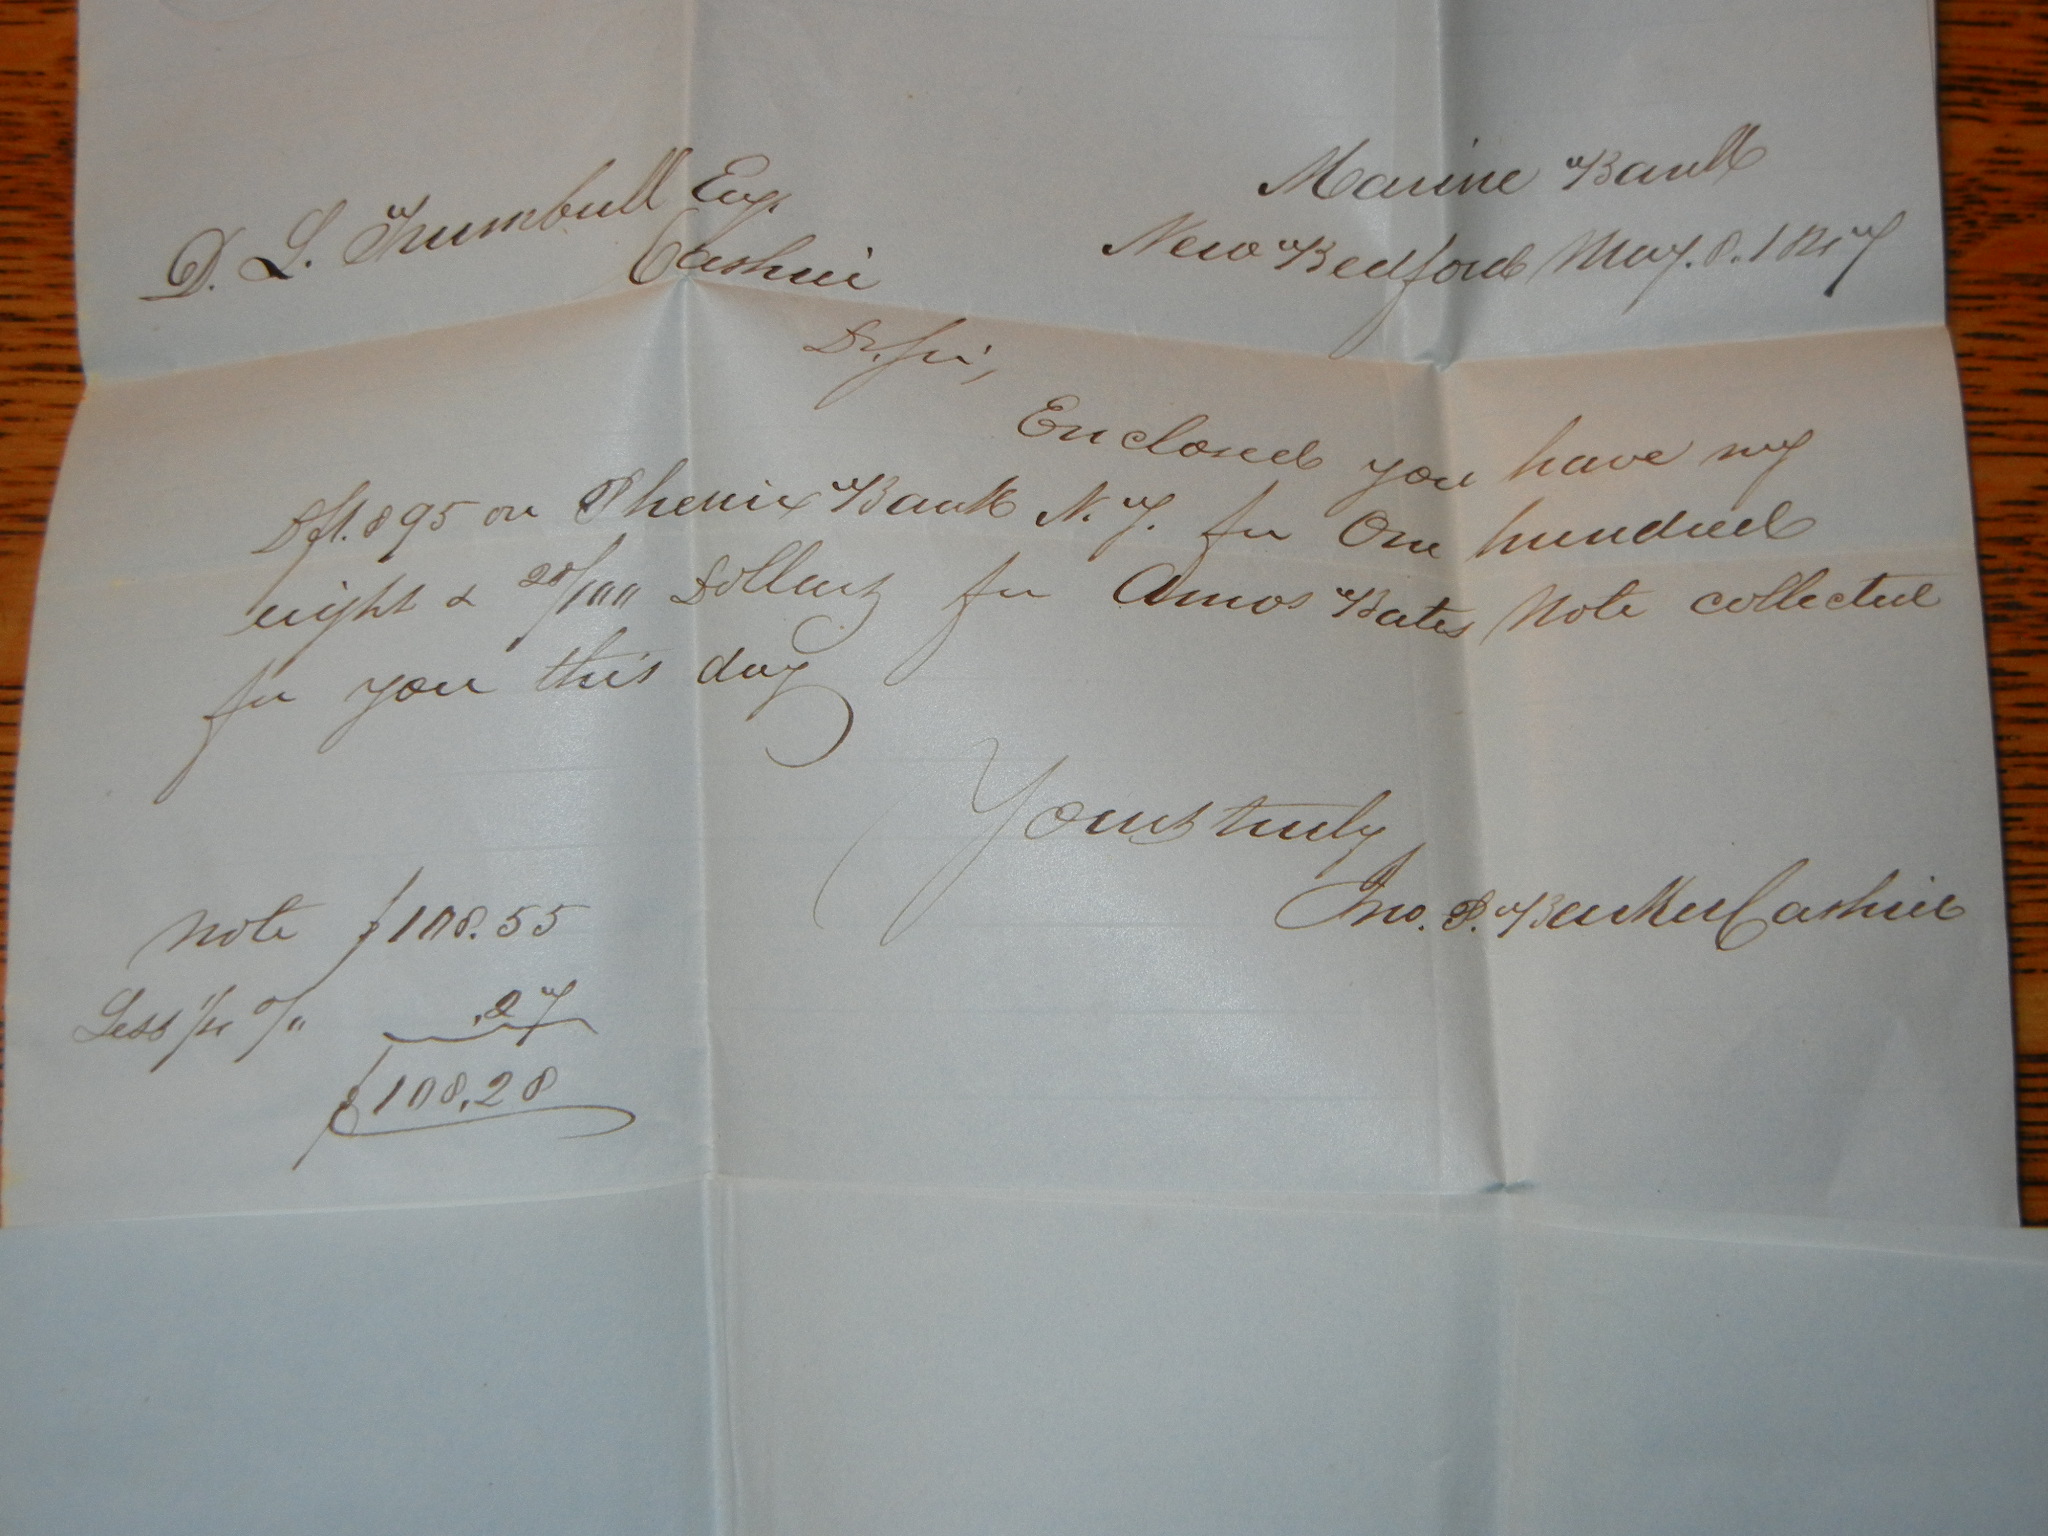 Marine Bank
New Bedford May. 8. 1847
D. L. Trumbull Esq.
Cashier
Dr. Sir,
Enclosed you have my
Dft. 895 on Phenix Bank N. Y. for One hundred
eight & 28/100 Dollars for Amos Bates Note collected
for you this day
Yours truly
Jno. P. Barker Cashier
Note $108.55
Less 1/4 %  .27
$108.28